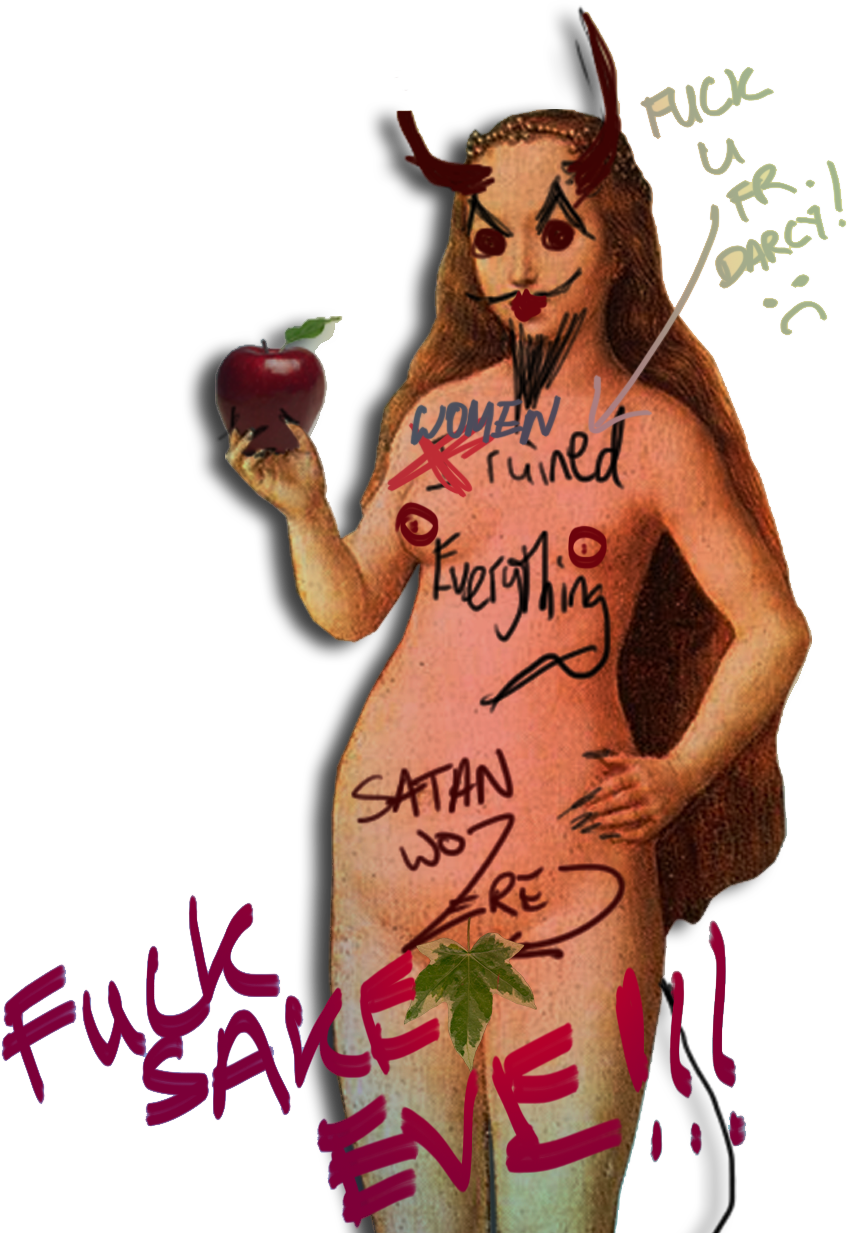 FUCK
U
FR.
DARCY!
:(
WOMEN
I ruined
Everything
SATAN
WOZ
ERE
FUCK
SAKE
EVE!!!